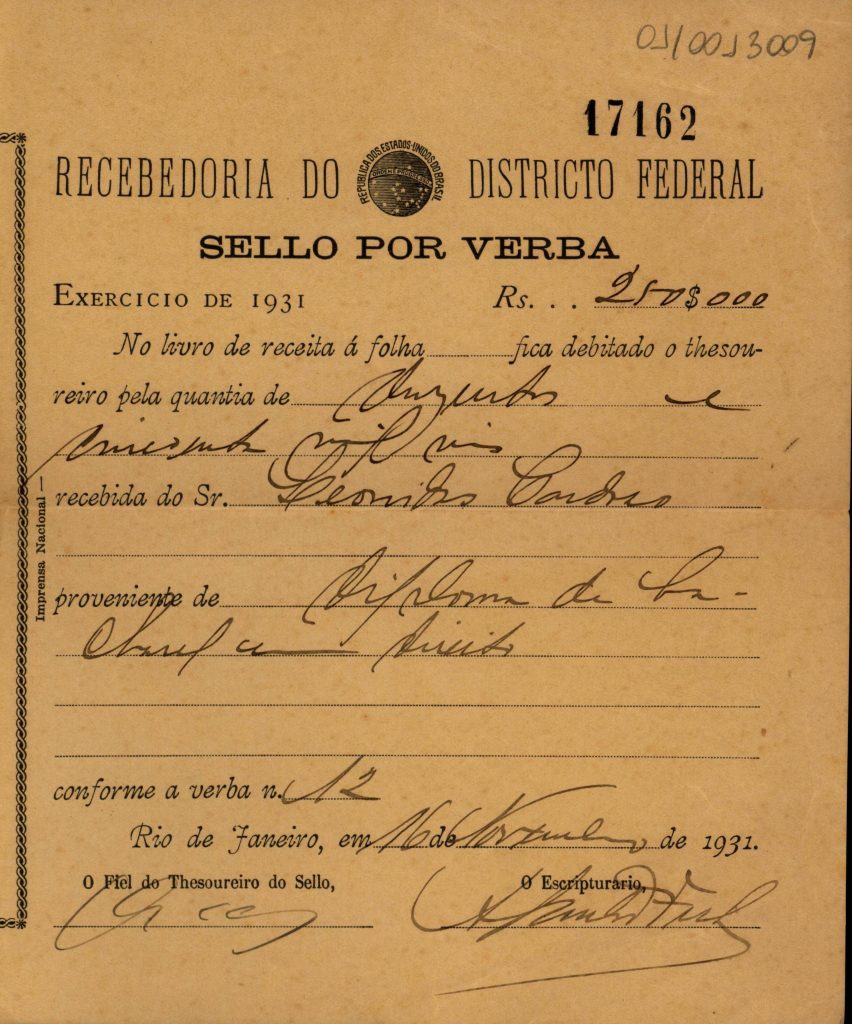 01/0013009
17162
RECEBEDORIA DO DISTRICTO FEDERAL
REPUBLICA DOS ESTADOS UNIDOS DO BRASIL
ORDEM E PROGRESSO
SELLO POR VERBA
EXERCICIO DE 1931 Rs. . . 250$000
No livro de receita á folha fica debitado o thesou-
reiro pela quantia de duzentos e
cincoenta mil reis
recebida do Sr. Leonidas Cardoso
proveniente de diploma de ba-
charel em direito
conforme a verba n. 12
Rio de Janeiro, em 16 de Novembro de 1931.
O Fiel do Thesoureiro do Sello, O Escripturário,
Imprensa Nacional —